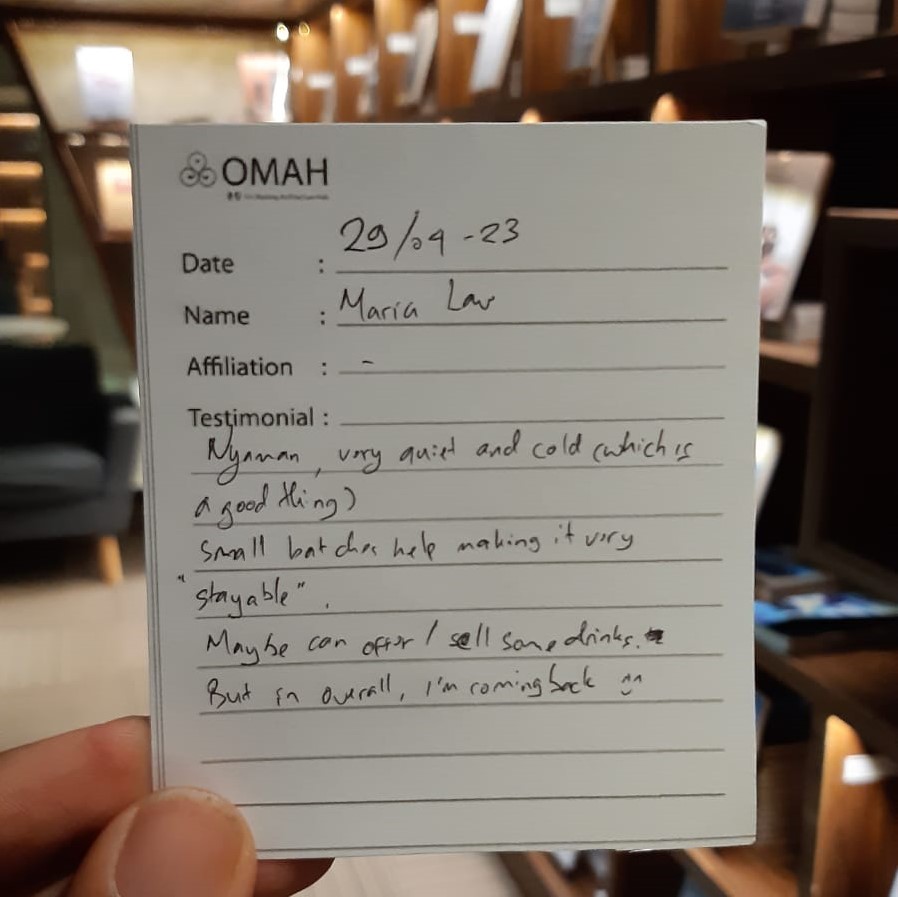 OMAH
Date : 29/04-23
Name : Maria Law
Affiliation : -
Testimonial :
Nyaman, very quiet and cold (which is
a good thing)
Small batches help making it very
"stayable".
Maybe can offer / sell some drinks.
But in overall, I'm coming back ^^